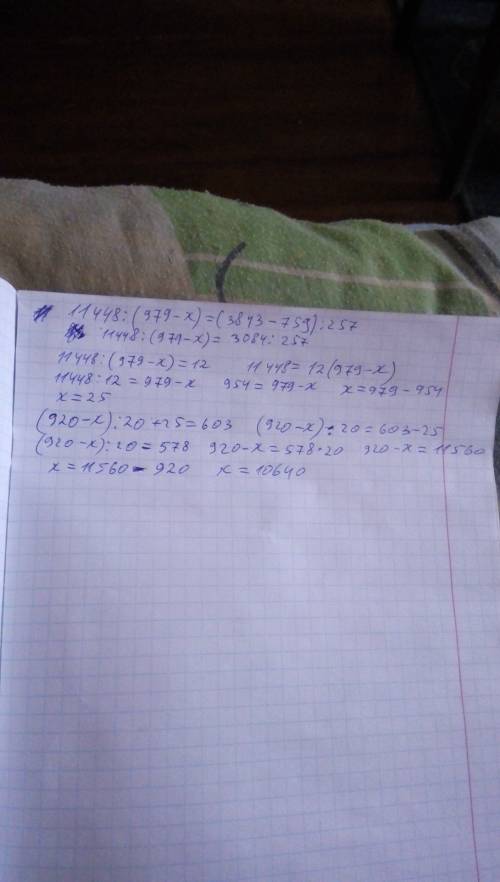 11448:(979-x)=(3843-759):257
11448:(979-x)=3084:257
11448:(979-x)=12 11448=12(979-x)
11448:12=979-x 954=979-x x=979-954
x=25
(920-x):20+25=603 (920-x):20=603-25
(920-x):20=578 920-x=578·20 920-x=11560
x=11560-920 x=10640